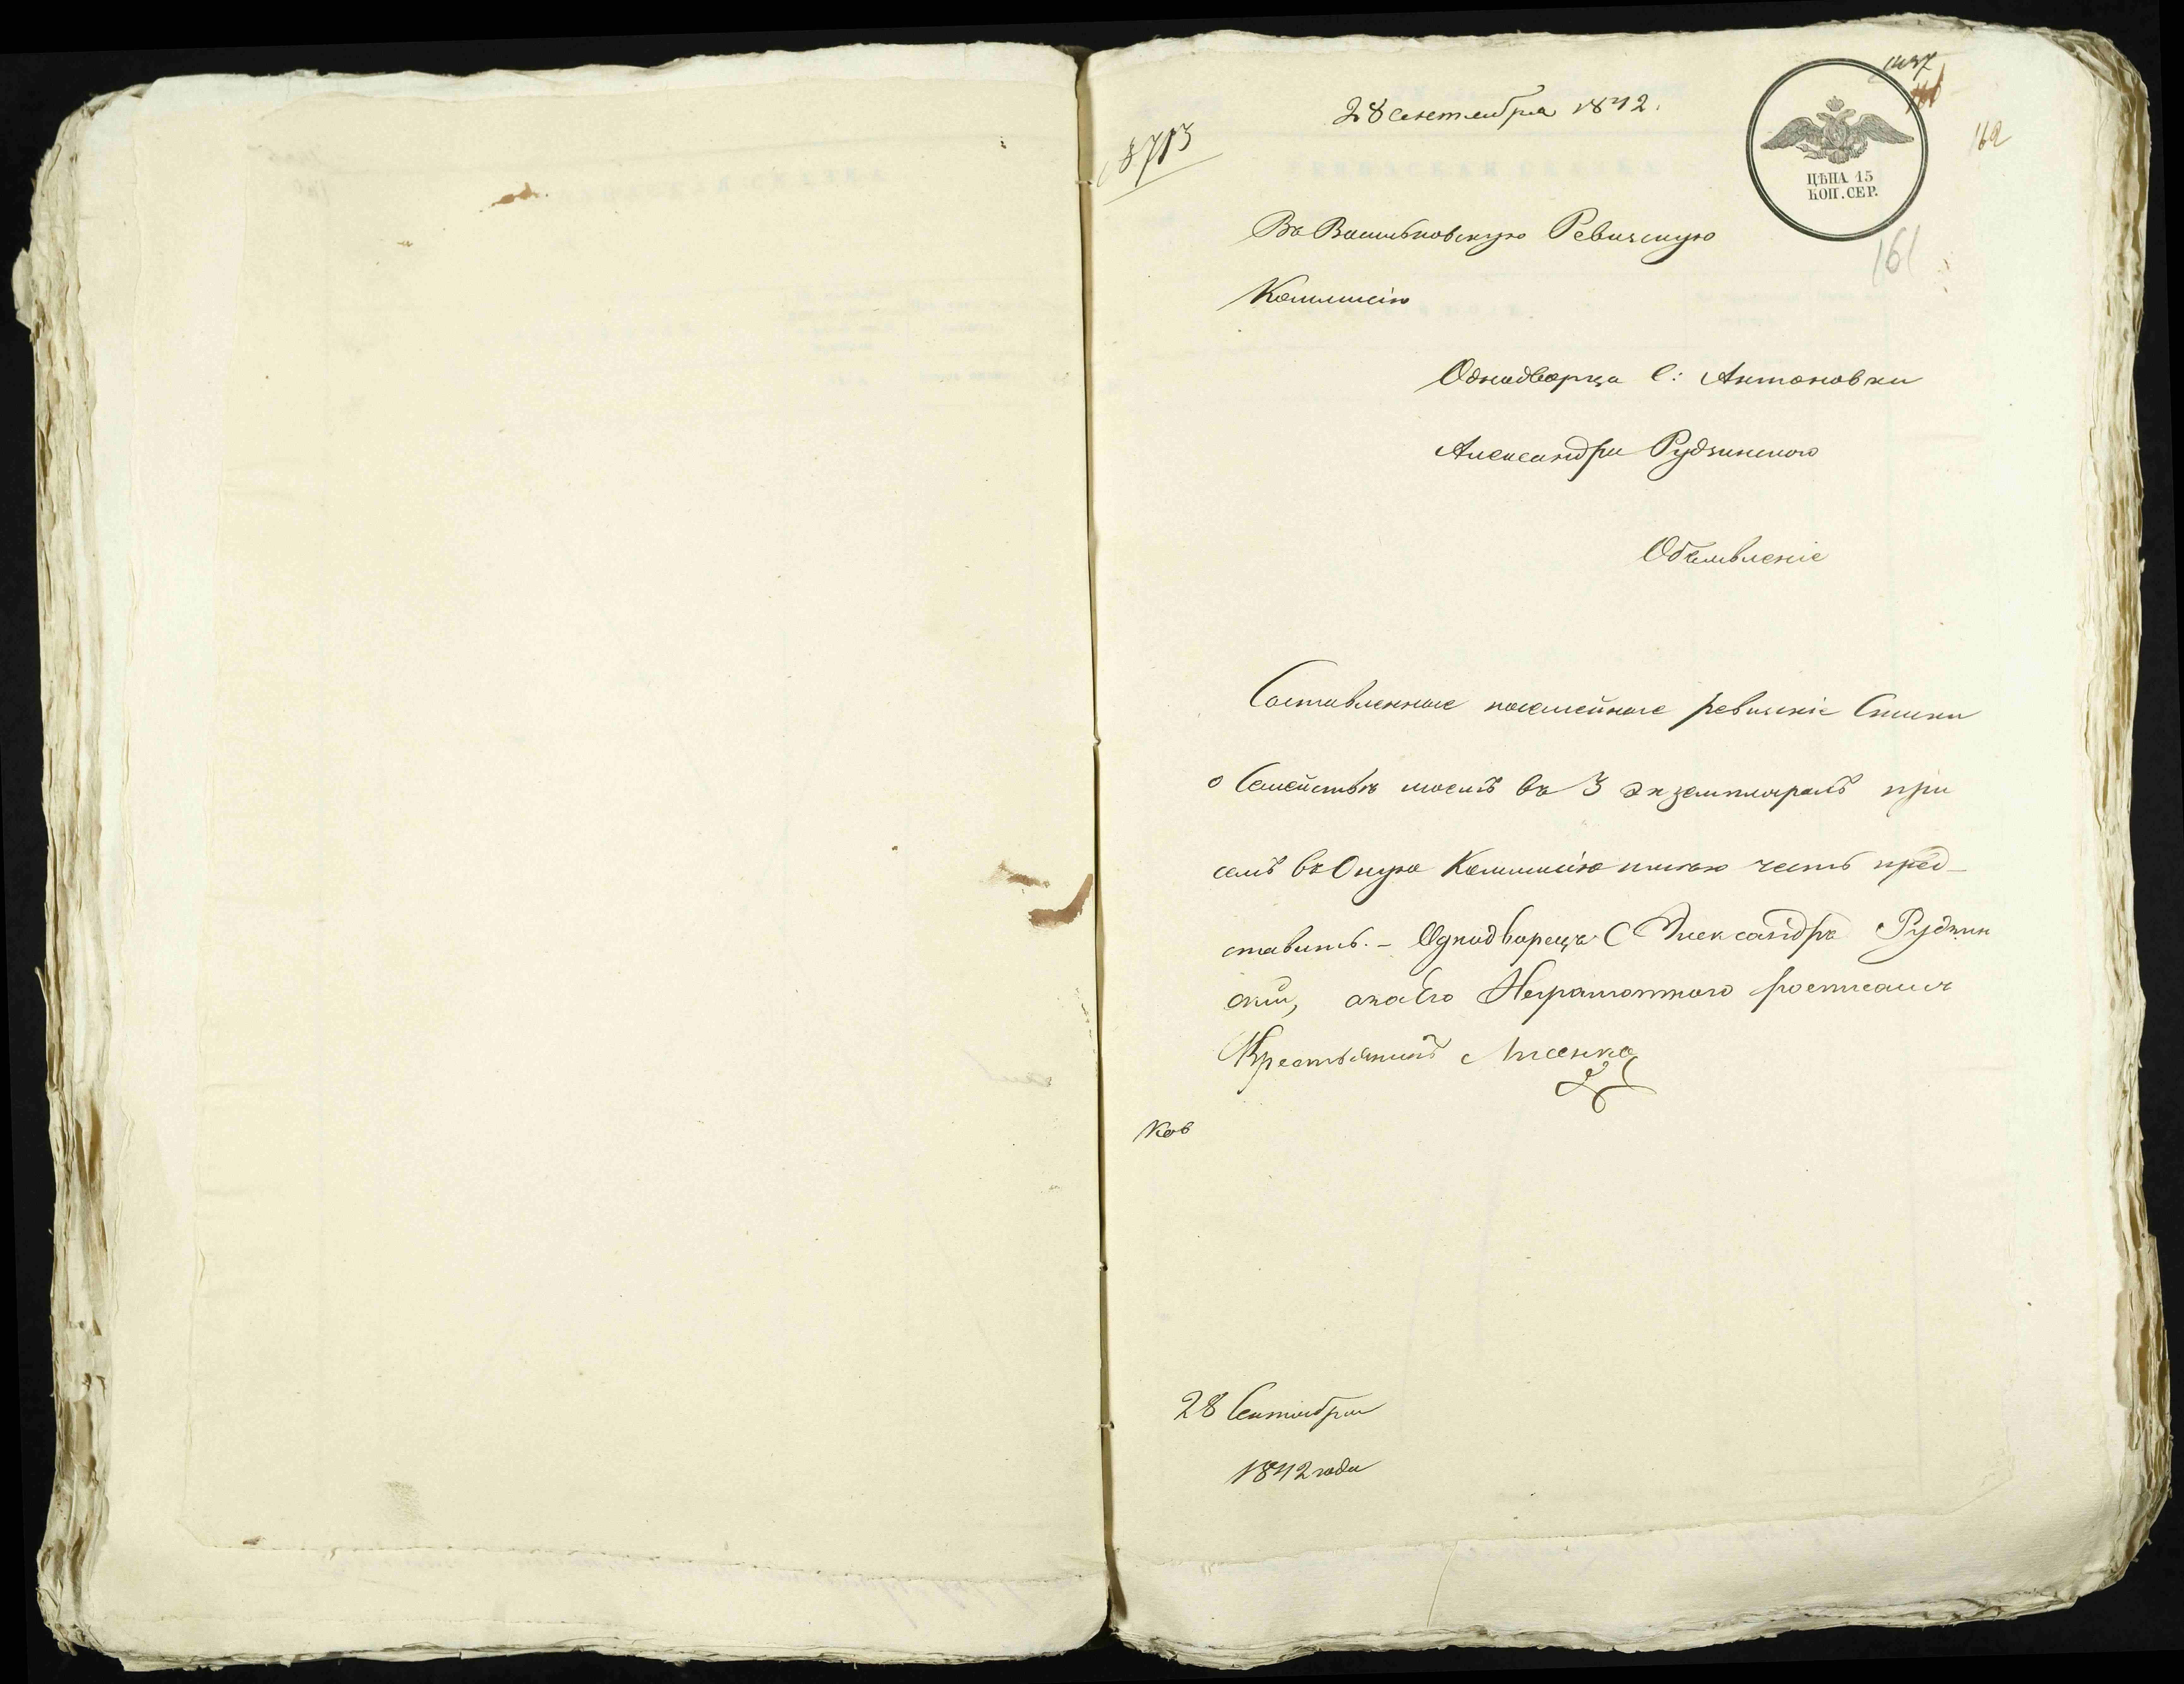 28 Сентебра 1842.
3713
1437
162
ЦѢНА 15
КОП. СЕР.
161
Въ Васильковскую Ревизскую
Коммисію
Однодворца С: Антоновки
Александра Рудзинского
Объявленіе
Составленные посемейные ревизкіе Списки
о Семействѣ моемъ въ 3 экземплярахъ при
семъ въ Оную Коммисію имѣю честь пред-
ставить. - Однодворецъ Александръ Рудзин
ский, а за Его Неграмотного росписался
Крестьянинъ Лисенко
28 Сентября
1842 года